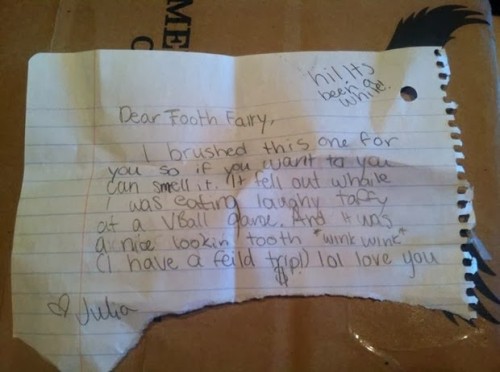 ME
hi! Its
been a
while!
Dear Tooth Fairy,
I brushed this one for
you so if you want to you
can smell it. It fell out whale
I was eating laughy taffy
at a VBall game. And it was
a nice lookin tooth *wink wink*
(I have a feild trip!) lol love you
♡ Julia